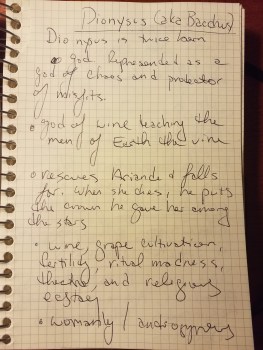 Dionysus (aka Bacchus)
Dionysus is twice born
• god represented as a
god of chaos and protector
of misfits.
• god of wine teaching the
men of Earth the vine
• rescues Ariande & falls
for. When she dies, he puts
the crown he gave her among
the stars
• wine, grape cultivation,
fertility, ritual madness,
theatre, and religious
ecstasy
• womanly / androgynous